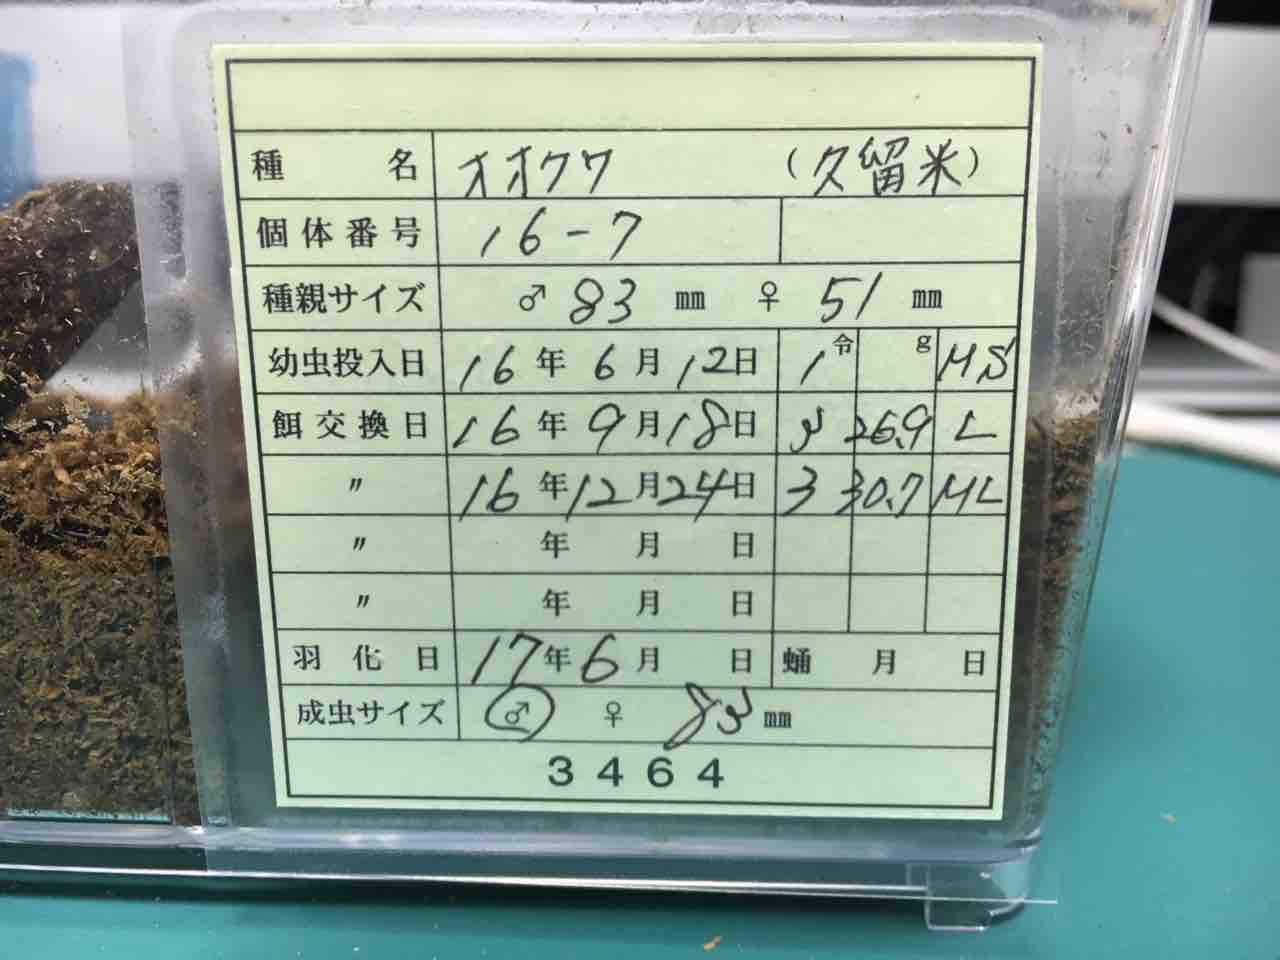 種名 オオクワ (久留米)
個体番号 16-7
種親サイズ ♂ 83 ㎜ ♀ 51 ㎜
幼虫投入日 16年 6月 12日 1令 g MS
餌交換日 16年 9月 18日 3 26.9 L
〃 16年 12月 24日 3 30.7 ML
〃 年 月 日
〃 年 月 日
羽化日 17年 6月 日 蛹 月 日
成虫サイズ ♂ ♀ 83 ㎜
3464